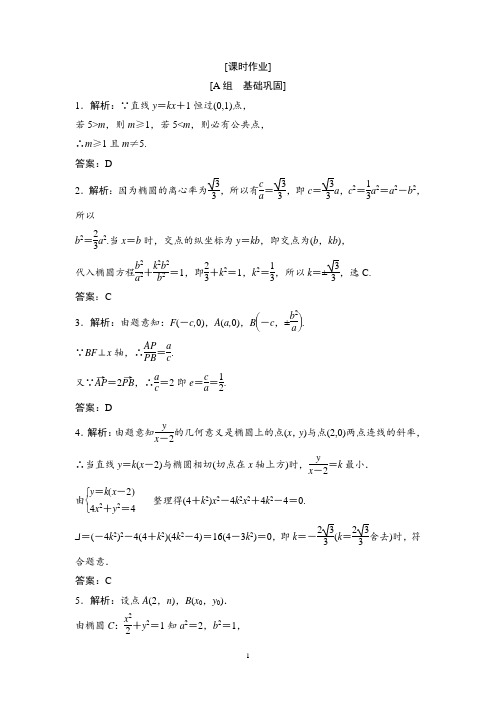 [课时作业]
[A组 基础巩固]
1．解析：∵直线y＝kx＋1恒过(0,1)点，
若5>m，则m≥1，若5<m，则必有公共点，
∴m≥1且m≠5.
答案：D
2．解析：因为椭圆的离心率为√3/3，所以有c/a＝√3/3，即c＝√3/3a，c²＝1/3a²＝a²－b²，
所以
b²＝2/3a².当x＝b时，交点的纵坐标为y＝kb，即交点为(b，kb)，
代入椭圆方程b²/a²＋k²b²/b²＝1，即2/3＋k²＝1，k²＝1/3，所以k＝±√3/3，选C.
答案：C
3．解析：由题意知：F(－c,0)，A(a,0)，B(－c，±b²/a).
∵BF⊥x轴，∴AP/PB＝a/c.
又∵AP→＝2PB→，∴a/c＝2即e＝c/a＝1/2.
答案：D
4．解析：由题意知y/(x－2)的几何意义是椭圆上的点(x，y)与点(2,0)两点连线的斜率，
∴当直线y＝k(x－2)与椭圆相切(切点在x轴上方)时，y/(x－2)＝k最小．
由{y＝k(x－2)
4x²＋y²＝4 整理得(4＋k²)x²－4k²x²＋4k²－4＝0.
⊿＝(－4k²)²－4(4＋k²)(4k²－4)＝16(4－3k²)＝0，即k＝－2√3/3(k＝2√3/3舍去)时，符
合题意．
答案：C
5．解析：设点A(2，n)，B(x₀，y₀)．
由椭圆C：x²/2＋y²＝1知a²＝2，b²＝1，
1